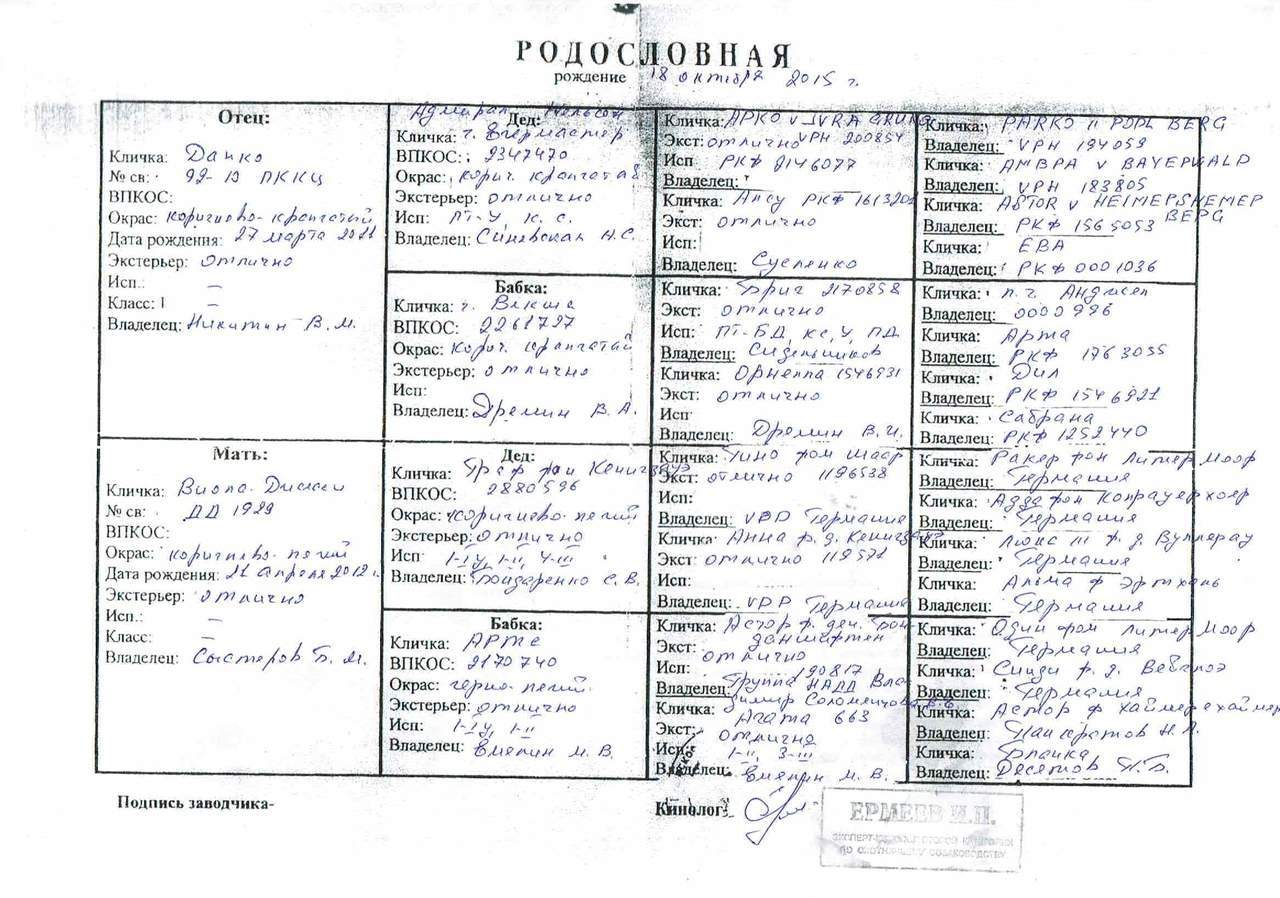 РОДОСЛОВНАЯ
рождение 18 октября 2015 г.
Отец:
Кличка: Данко
№ св: 99-13 ПККЦ
ВПКОС:
Окрас: коричнево-крапчатый
Дата рождения: 27 марта 2011
Экстерьер: отлично
Исп.: –
Класс: –
Владелец: Никитин В.М.
Дед:
Адмирал Нельсон
Кличка: ч.
ВПКОС: 2347470
Окрас: корич. крапчатый
Экстерьер: отлично
Исп: ПТ-У, К.С.
Владелец: Синявская Н.С.
Бабка:
Кличка: ч. Векша
ВПКОС: 2261727
Окрас: корич. крапчатый
Экстерьер: отлично
Исп:
Владелец: Дремин В.А.
Кличка: АРКО v IVRA GRUND
Экст: отлично VPH 200854
Исп РКФ 2146077
Владелец:
Кличка: Алсу РКФ 1613201
Экст: отлично
Исп:
Владелец: Сусленко
Кличка: Бриг 2170858
Экст: отлично
Исп: ПТ-БД, КС, У, ПД
Владелец: Сидельников
Кличка: Орнелла 1546931
Экст: отлично
Исп:
Владелец: Дремин В.И.
Кличка: PARKO II POPL BERG
Владелец: VPH 194059
Кличка: АМВРА v BAYERWALD
Владелец: VPH 183805
Кличка: ASTOR v HEIMERSHEMER BERG
Владелец: РКФ 1565053
Кличка: ЕВА
Владелец: РКФ 0001036
Кличка: п.ч. Анджел
Владелец: 0000996
Кличка: Арта
Владелец: РКФ 1763035
Кличка: Дил
Владелец: РКФ 1546921
Кличка: Сабрина
Владелец: РКФ 1252440
Мать:
Кличка: Виола-
№ св: ДД 1929
ВПКОС:
Окрас: коричнево-пегий
Дата рождения: 21 апреля 2012 г.
Экстерьер: отлично
Исп.: –
Класс: –
Владелец: Сыстеров Б.М.
Дед:
Кличка: Граф фон Кенигзауэ
ВПКОС: 2880596
Окрас: коричнево-пегий
Экстерьер: отлично
Исп I-IV, I-II, 4-III
Владелец: Бондаренко С.В.
Бабка:
Кличка: АРТА
ВПКОС: 2170740
Окрас: черно-пегий
Экстерьер: отлично
Исп: I-IV, I-II
Владелец: Емелин М.В.
Кличка: Тино фом Шаар
Экст: отлично 1196538
Исп:
Владелец: VDD Германия
Кличка: Анна ф.д. Кенигзауэ
Экст: отлично 119571
Исп:
Владелец: VDD Германия
Кличка: Астор ф. ден. Бонденшифтен
Экст: отлично
Исп: 190817
Владелец: Группа НАДД Владимир Соломенцова В.В.
Кличка: Агата 663
Экст: отлично
Исп: I-II, 3-III
Владелец: Емелин М.В.
Кличка: Ракер фон Литер Моор
Владелец: Германия
Кличка: Адда фон Копрауерхоер
Владелец: Германия
Кличка: Люкс III ф.д. Вуллерау
Владелец: Германия
Кличка: Альма ф Эртхань
Владелец: Германия
Кличка: Один фом Литер Моор
Владелец: Германия
Кличка: Синди ф.д.
Владелец: Германия
Кличка: Астор ф Хаймерсхаймер
Владелец: Панкратов Н.А.
Кличка: Бланка
Владелец: Десятов П.Б.
Подпись заводчика-
Кинолог
ЕРМЕЕВ И.П.
ЭКСПЕРТ-КИНОЛОГ ВТОРОЙ КАТЕГОРИИ
ПО ОХОТНИЧЬЕМУ СОБАКОВОДСТВУ